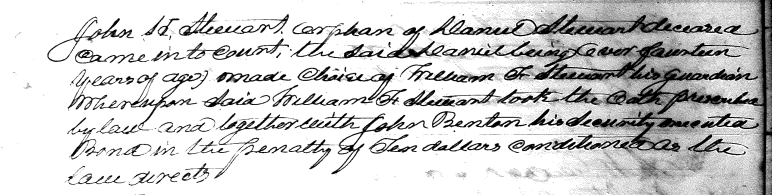 John H. Stewart. orphan of Daniel Stewart deceased
Came into Court, the said Daniel being (over fourteen
years of age) made Choise of William F. Stewart his guardian
Whereupon said William F. Stewart took the Oath prescribed
by law and together with John Benton his security executed
Bond in the penalty of Ten dollars Conditioned as the
law directs